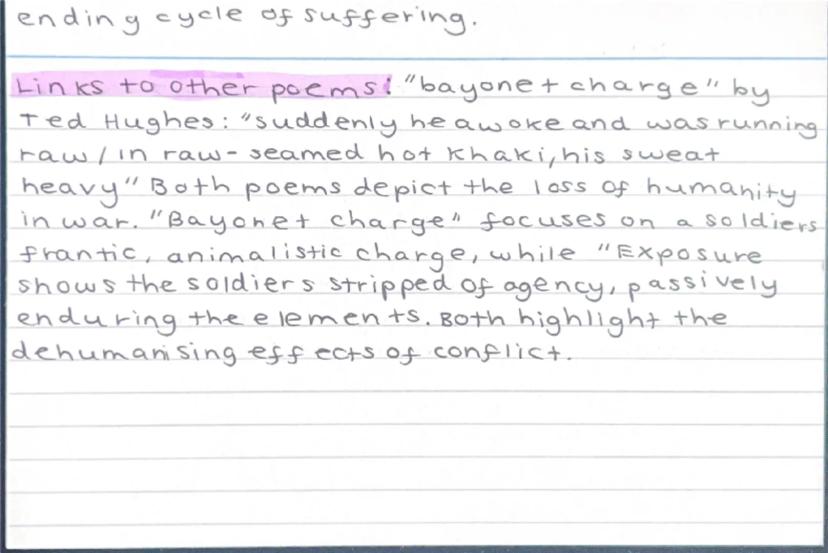 ending cycle of suffering.
Links to other poems: "bayonet charge" by
Ted Hughes: "suddenly he awoke and was running
raw/in raw-seamed hot khaki, his sweat
heavy" Both poems depict the loss of humanity
in war. "Bayonet charge" focuses on a soldiers
frantic, animalistic charge, while "Exposure
shows the soldiers stripped of agency, passively
enduring the elements. Both highlight the
dehumanising effects of conflict.